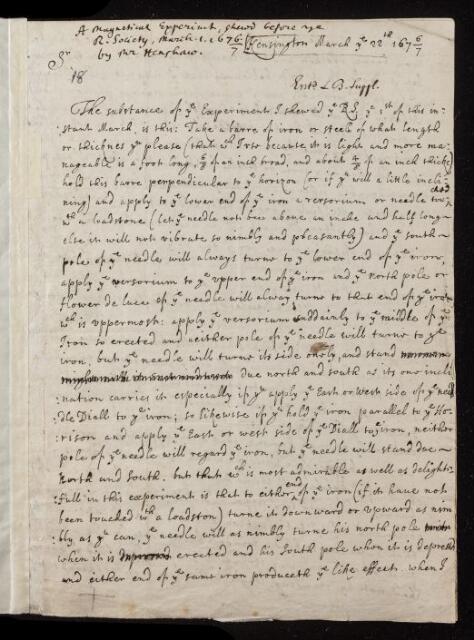 A Magneticall Experiment, shewd before yͤ
R. Society, March. 1. 1676/7
by Mr Henshaw.
Kensington March yͤ 22ᵗʰ 167 6/7
Sʳ
18
Entᵈ L B. Suppl.
The substance of yͤ Experiment I shewed yͤ R S yͤ 1ˢᵗ of this in-
stant March, is this: Take a barre of iron or steel of what length
or thicknes yͧ please (that wᶜʰ I use because it is light and more ma-
nageable is a foot long, of an inch broad, and about of an inch thicke)
hold this barre perpendicular to yͤ horizon (or if yͧ will a little incli-
ning) and apply to yͤ lower end of yͤ iron a versorium or needle touched
wᵗʰ a loadstone (let yͤ needle not bee above an inche and half long
else it will not vibrate so nimbly and pleasantly) and yͤ south-
pole of yͤ needle will always turne to yͤ lower end of yͤ iron,
apply yͤ versorium to yͤ upper end of yͤ iron and yͤ north pole or
flower de luce of yͤ needle will alway turne to that end of yͤ iron
wᶜʰ is uppermost: apply yͤ versorium suddainly to yͤ middle of yͤ
Iron so erected and neither pole of yͤ needle will turne to yͤ
iron, but yͤ needle will turne its side onely, and stand
due north and south as its one incli-
nation carries it especially if yͧ apply yͤ East or West side of yͤ nee-
dle Diall to yͤ iron; so likewise if yͧ hold yͤ iron parallel to yͤ Ho-
rison and apply yͤ East or west side of yͤ Diall to yͤ iron, neither
pole of yͤ needle will regard yͤ iron, but yͤ needle will stand due
North and South. but that wᶜʰ is most admirable as well as delight-
full in this experiment is that to either end of yͤ iron (if it have not
been touched wᵗʰ a loadston) turne it downward or upward as nim
bly as yͧ can, yͤ needle will as nimbly turne his north pole
when it is erected and his South pole when it is deprest
and either end of yͤ same iron produceth yͤ like effect. when I